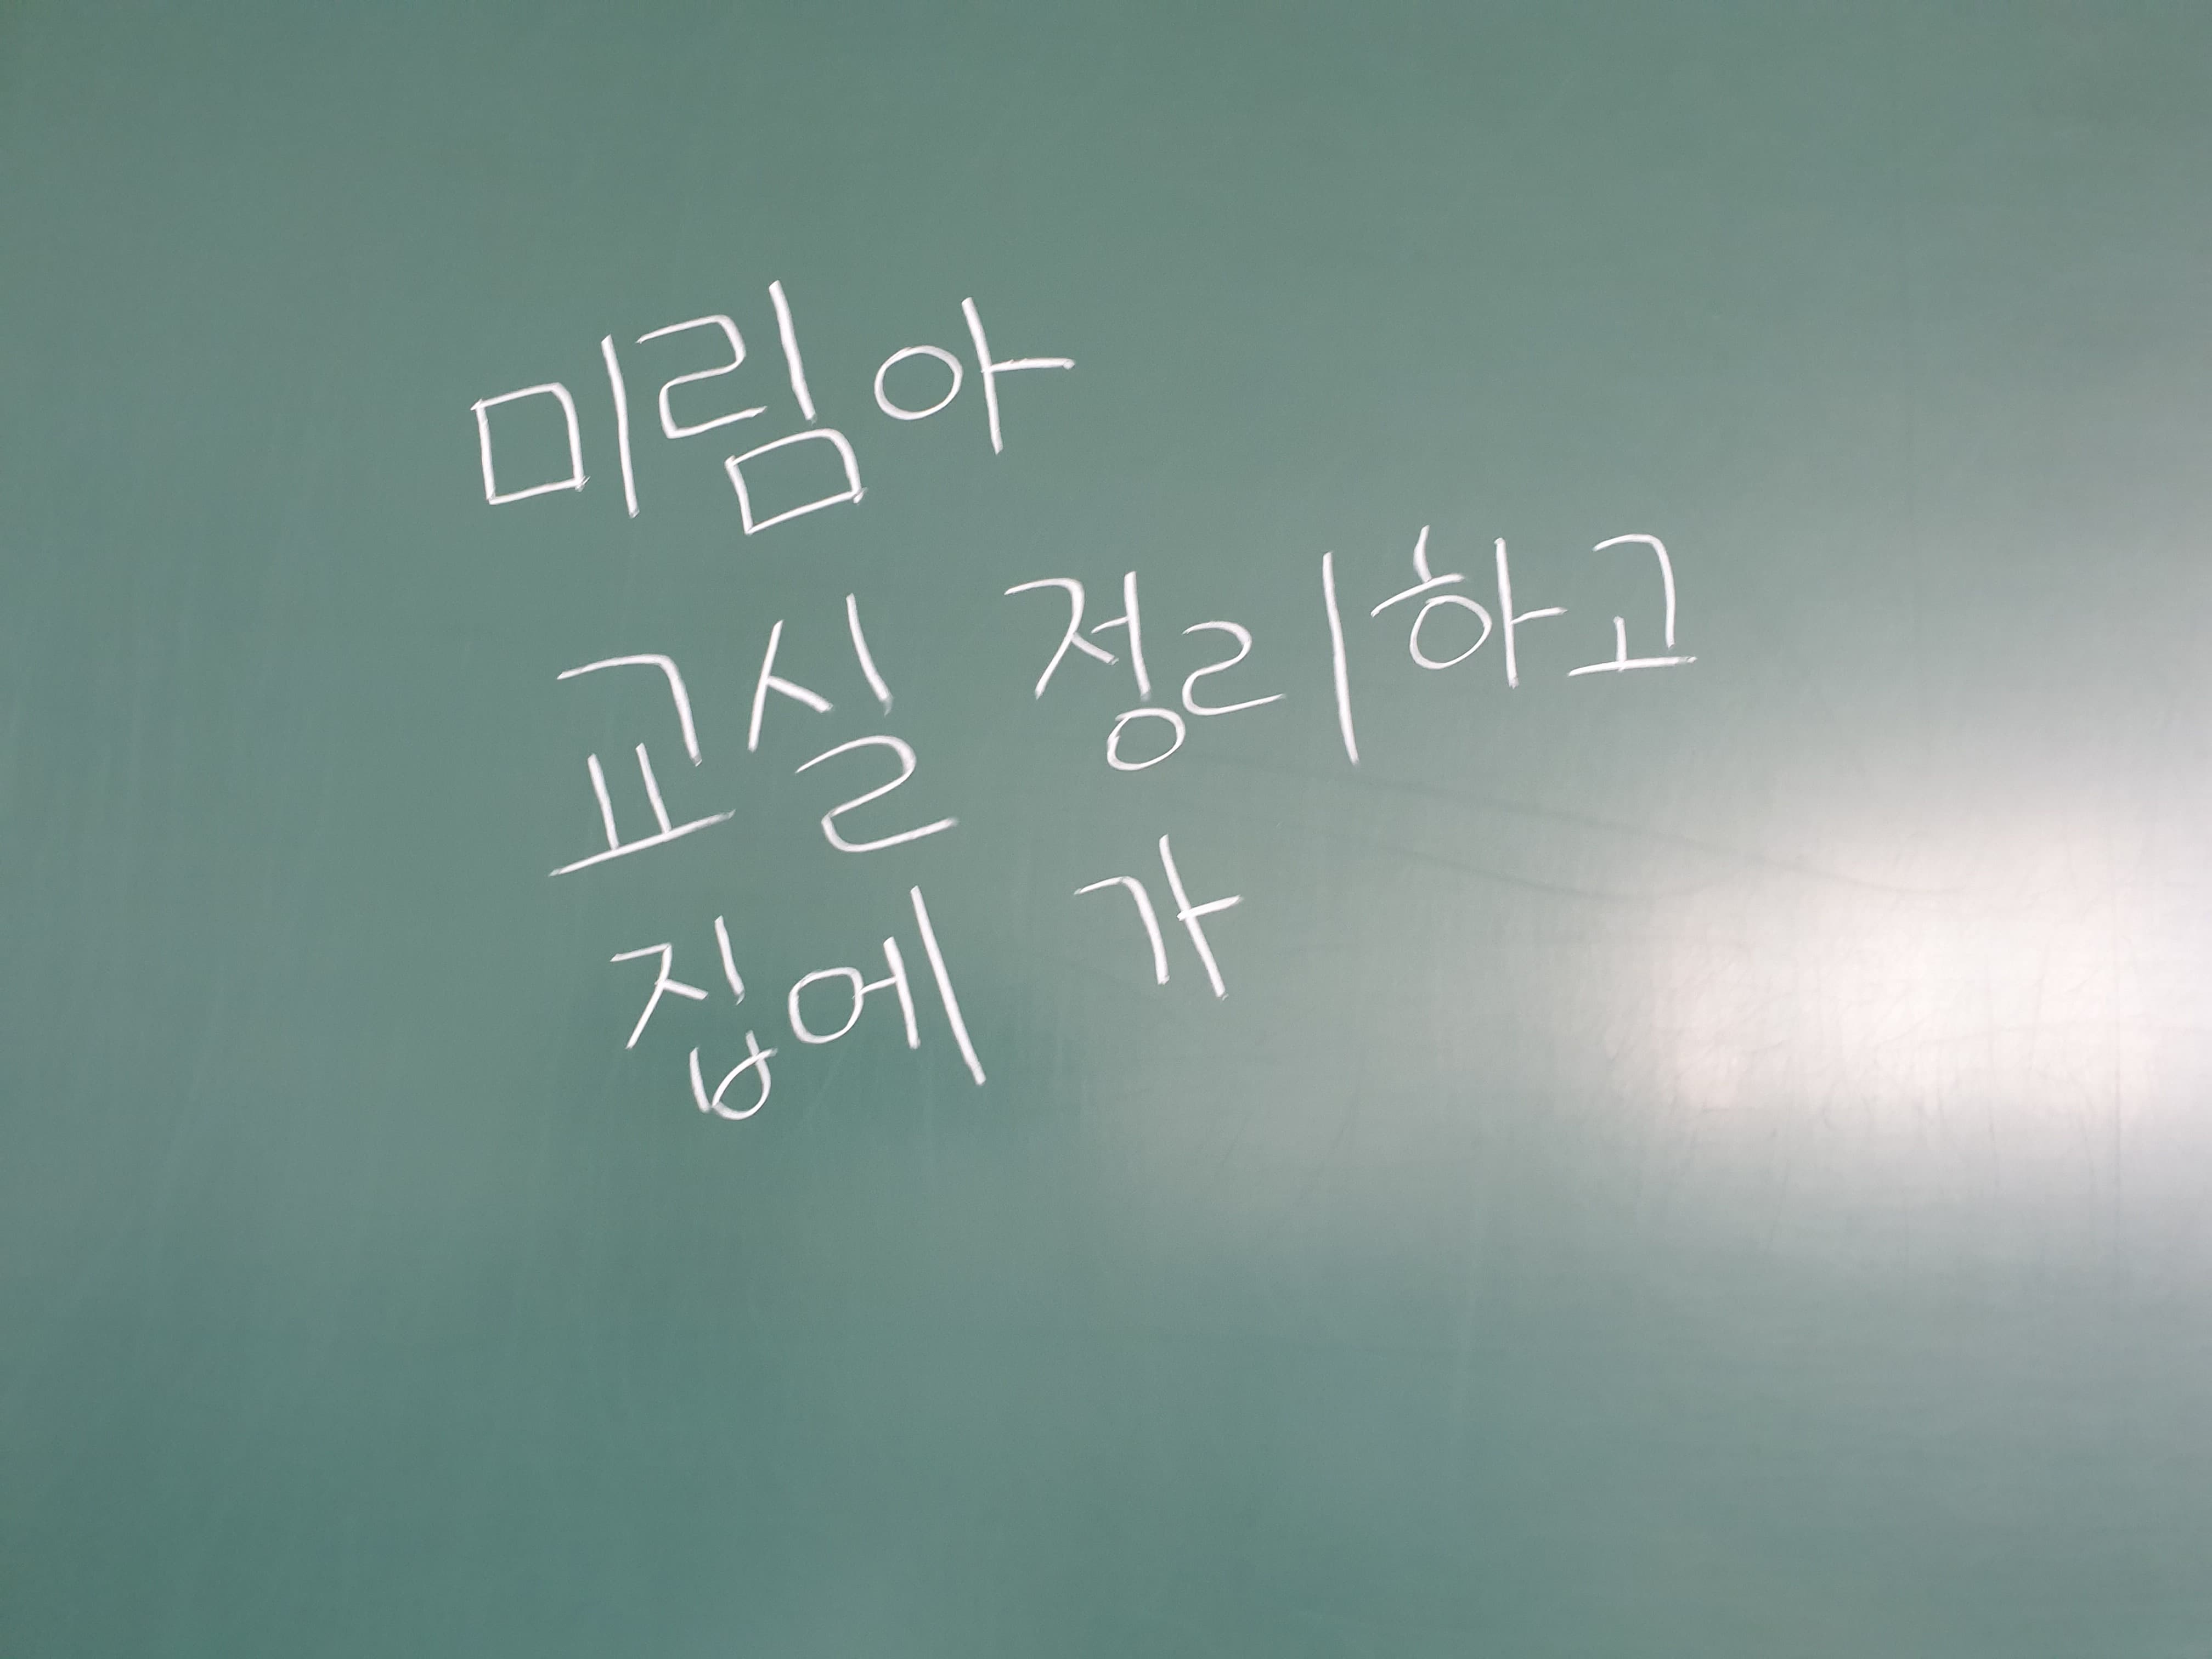 미림아
교실 정리하고
집에 가